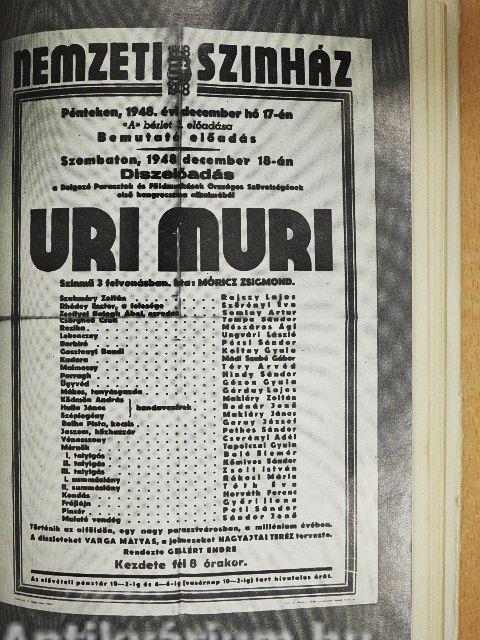 NEMZETI SZINHÁZ
1848
1948
Pénteken, 1948. évi december hó 17-én
«A» bérlet 2. előadása
Bemutató előadás
Szombaton, 1948 december 18-án
Díszelőadás
a Dolgozó Parasztok és Földmunkások Országos Szövetségének
első kongresszusa alkalmából
URI MURI
Színmű 3 felvonásban. Irta: MÓRICZ ZSIGMOND.
Szakmáry Zoltán Rajczy Lajos
Rhédey Eszter, a felesége Szörényi Éva
Zsellyei Balogh Ábel, ezredes Somlay Artur
Csörgheő Csuli Tompa Sándor
Rozika Mészáros Ági
Lekenczey Ungvári László
Borbíró Pécsi Sándor
Gosztonyi Bandi Koltay Gyula
Kadara Mádi Szabó Gábor
Malmossy Téry Árvéd
Parragh Hindy Sándor
Ügyvéd Gózon Gyula
Mákos, tanyásgazda Gárday Lajos
Ködmön András Makláry Zoltán
Hulla János Bodnár Jenő
bandavezérek
Széplegény Makláry János
Bolha Pista, kocsis Garay József
Jaszom, közhuszár Pethes Sándor
Vénasszony Cserényi Adél
Mérnök Tapolczai Gyula
I. talyigás Baló Elemér
II. talyigás Kőmives Sándor
III. talyigás Zsolt István
I. summáslány Rákosi Mária
II. summáslány Tóth Éva
Kondás Horváth Ferenc
Fróljájn Győri Ilona
Pincér Peti Sándor
Mulató vendég Sándor Jenő
Történik az alföldön, egy nagy parasztvárosban, a millénium évében.
A díszleteket VARGA MÁTYÁS, a jelmezeket NAGYAJTAI TERÉZ tervezte.
Rendezte GELLÉRT ENDRE
Kezdete fél 8 órakor.
Az elővételi pénztár 10—2-ig és 4—6-ig (vasárnap 10—2-ig) tart hivatalos órát.
Antikvárium.hu